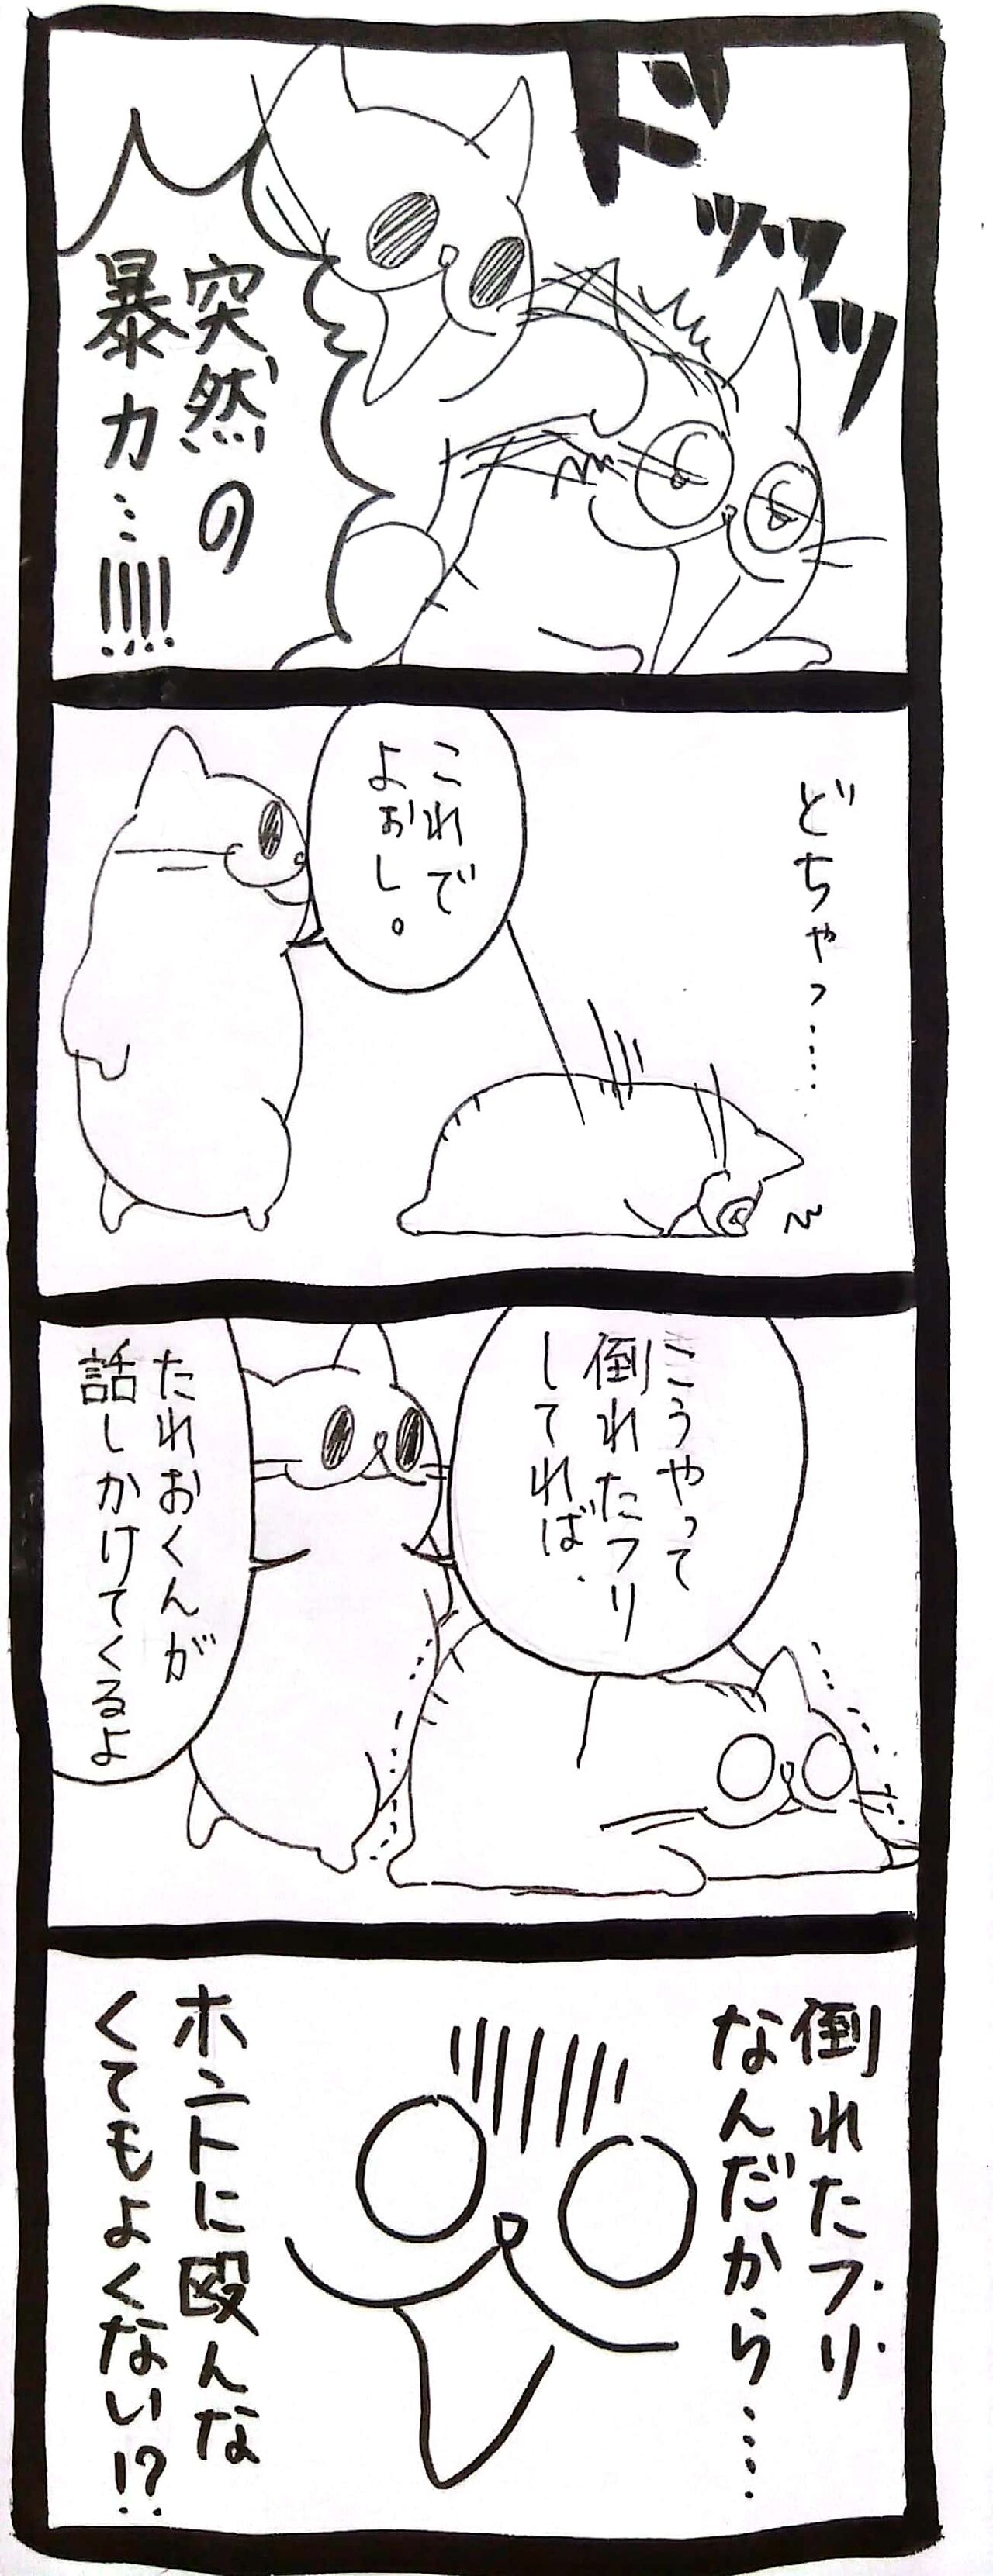 ドッッッ
突然の
暴力…!!!!
どちゃっ……
これで
よぉし。
こうやって
倒れたフリ
してれば、
たれおくんが
話しかけてくるよ
倒れたフリ
なんだから……
ホントに殴んな
くてもよくない!?